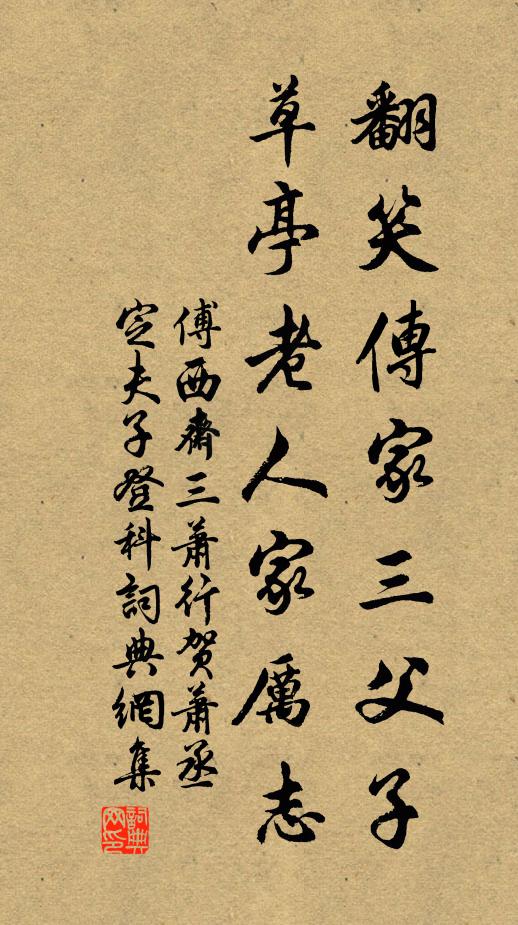 翻笑傳家三父子
草亭老人家厲志
傅西齋三蕭行賀蕭丞
定夫子登科詞典網集
詞典网印